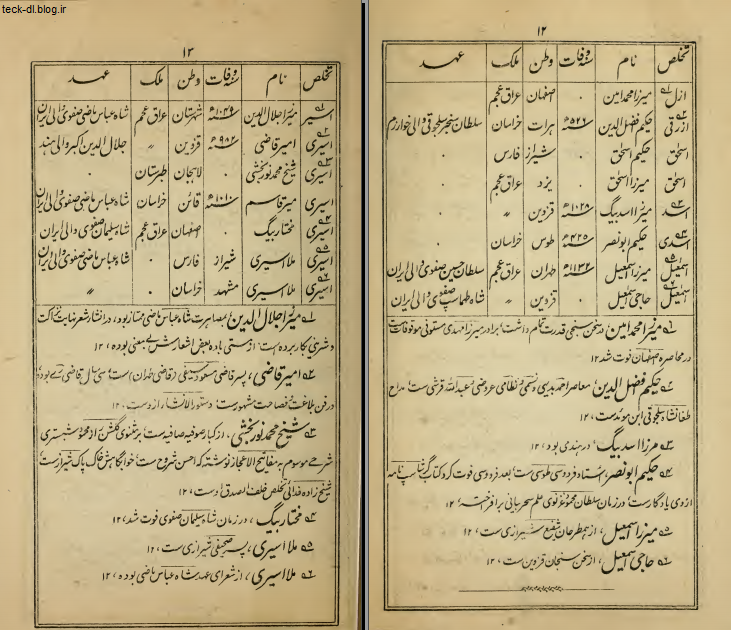 teck-dl.blog.ir
۱۲
تخلص نام سنه وفات وطن ملک عهد
ازل میرزا محمد امین ۰ اصفهان عراق عجم
ازرقی حکیم فضل الدین ۵۲۶ هرات خراسان سلطان سنجر سلجوقی والی خوارزم
اسحٰق حکیم اسحٰق ۰ شیراز فارس ۰
اسحٰق میرزا اسحٰق ۰ یزد عراق عجم
اسد میرزا اسد بیگ ۱۰۲۸ قزوین ״
اسدی حکیم ابونصر ۴۲۵ طوس خراسان
اسمٰعیل میرزا اسمٰعیل ۱۱۳۲ طهران عراق عجم سلطان حسین صفوی والی ایران
اسمٰعیل حاجی اسمٰعیل ۰ قزوین ״ شاه طهماسپ صفوی والی ایران
۱ میرزا محمد امین، در سخن سنجی قدرت تمام داشت، برادر میرزا مهدی مستوفی موقوفات ست
در محاصره صفاهان فوت شد ۱۲
۲ حکیم فضل الدین، معاصر احمد بدیهی و نظامی عروضی و عبدالله قرشی ست، مداح
طغانشاه سلجوقی ابن موید ست، ۱۲
۳ مرزا اسد بیگ، در هند می بود، ۱۲
۴ حکیم ابونصر، استاد فردوسی طوسی ست، بعد فردوسی فوت کرد کتاب گرشاسپ نامه
ازوی یادگارست، در زمان سلطان محمود غزنوی علم سحر بیانی برافراخته، ۱۲
۵ میرزا اسمٰعیل، از همطرحان شفیع شیرازی ست، ۱۲
۶ حاجی اسمٰعیل، از سخن سنجان قزوین ست، ۱۲
۱۳
تخلص نام سنه وفات وطن ملک عهد
اسیر میرزا جلال الدین ۱۰۴۹ شهرستان عراق عجم شاه عباس ماضی صفوی والی ایران
اسیری امیر قاضی ۹۸۲ قزوین ״ جلال الدین اکبر والی هند
اسیری شیخ محمد نوربخشی ۰ لاهجان طبرستان ۰
اسیری میر قاسم ۱۰۱۰ قائن خراسان شاه عباس ماضی صفوی والی ایران
اسیری مختار بیگ ۰ اصفهان عراق عجم شاه سلیمان صفوی والی ایران
اسیری ملا اسیری ۰ شیراز فارس شاه عباس ماضی صفوی والی ایران
اسیری ملا اسیری ۰ مشهد خراسان ״
۱ میرزا جلال الدین، بمصاهرت شاه عباس ماضی ممتاز بود، در انشاء شعر نهایت نزاکت
و شیرینی کار برده است، از مستی باده بعض اشعارش بی معنی بوده، ۱۲
۲ امیر قاضی، پسر قاضی مسعود سیفی (قاضی طهران) است، سی سال قاضی ری بود،
در فن بلاغت و فصاحت مشهورست، دستور الانشاء ازوست، ۱۲
۳ شیخ محمد نوربخشی، از کبار صوفیه صافیه ست، بر مثنوی گلشن راز محمود شبستری
شرحی موسوم به مفاتیح الاعجاز نوشته که احسن شروح ست، خوابگاهش خاک پاک شیراز ست،
شیخ زاده فدائی تخلص خلف الصدق اوست، ۱۲
۴ مختار بیگ، در زمان شاه سلیمان صفوی فوت شد، ۱۲
۵ ملا اسیری، پسر صحیفی شیرازی ست، ۱۲
۶ ملا اسیری، از شعرای عهد شاه عباس ماضی بوده، ۱۲